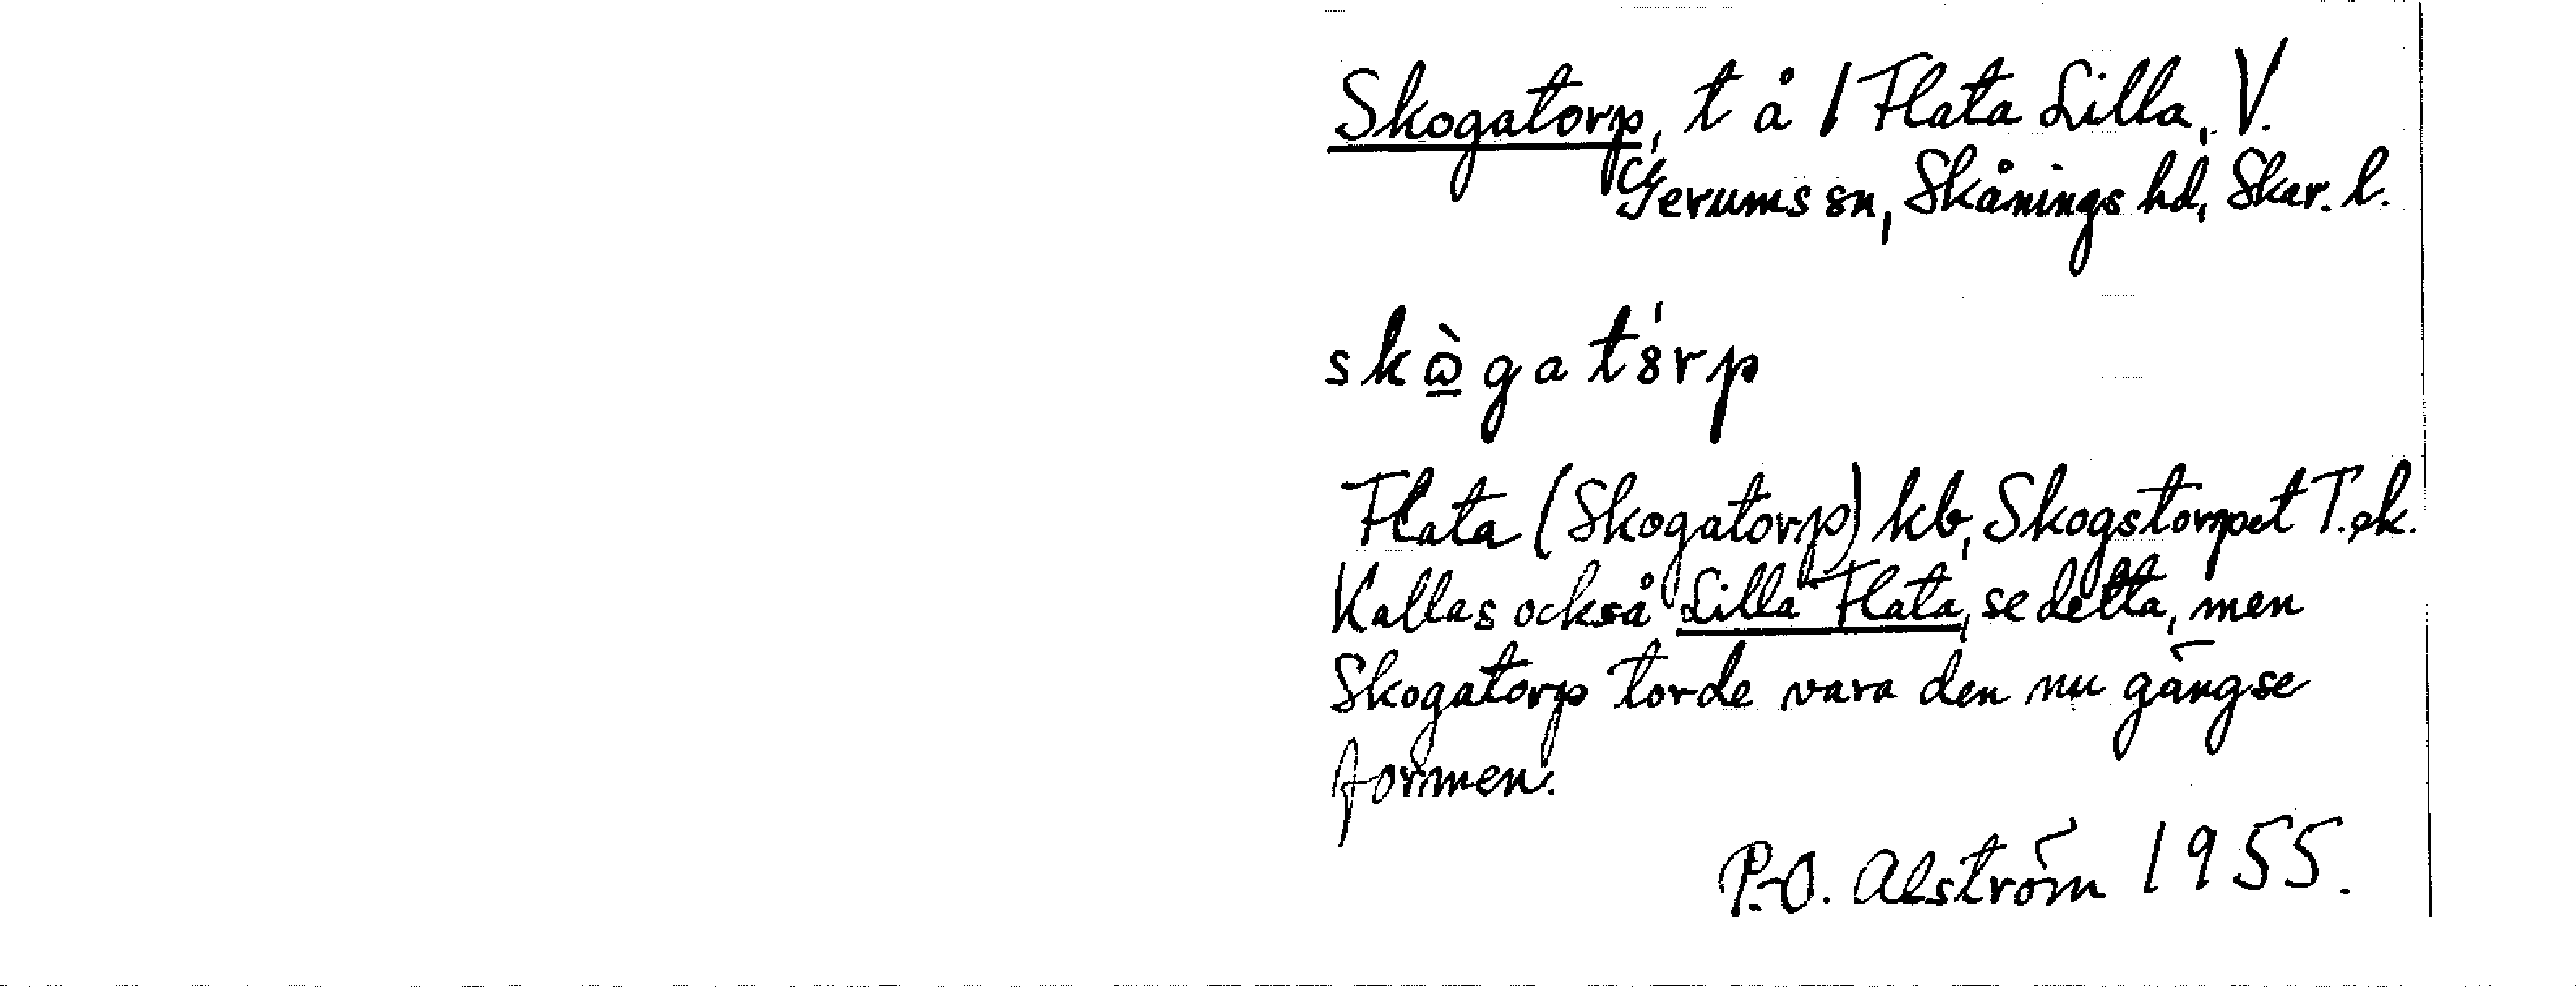 Skogatorp, t å 1 Flata Lilla, V.
Gerums sn, Skånings hd, Skar. l.
skὼ̲gatȣ́rp
Flata (Skogatorp) kb, Skogstorpet T.ek.
Kallas också Lilla Flata, se detta, men
Skogatorp torde vara den nu gängse
formen.
P.-O. Alström 1955.